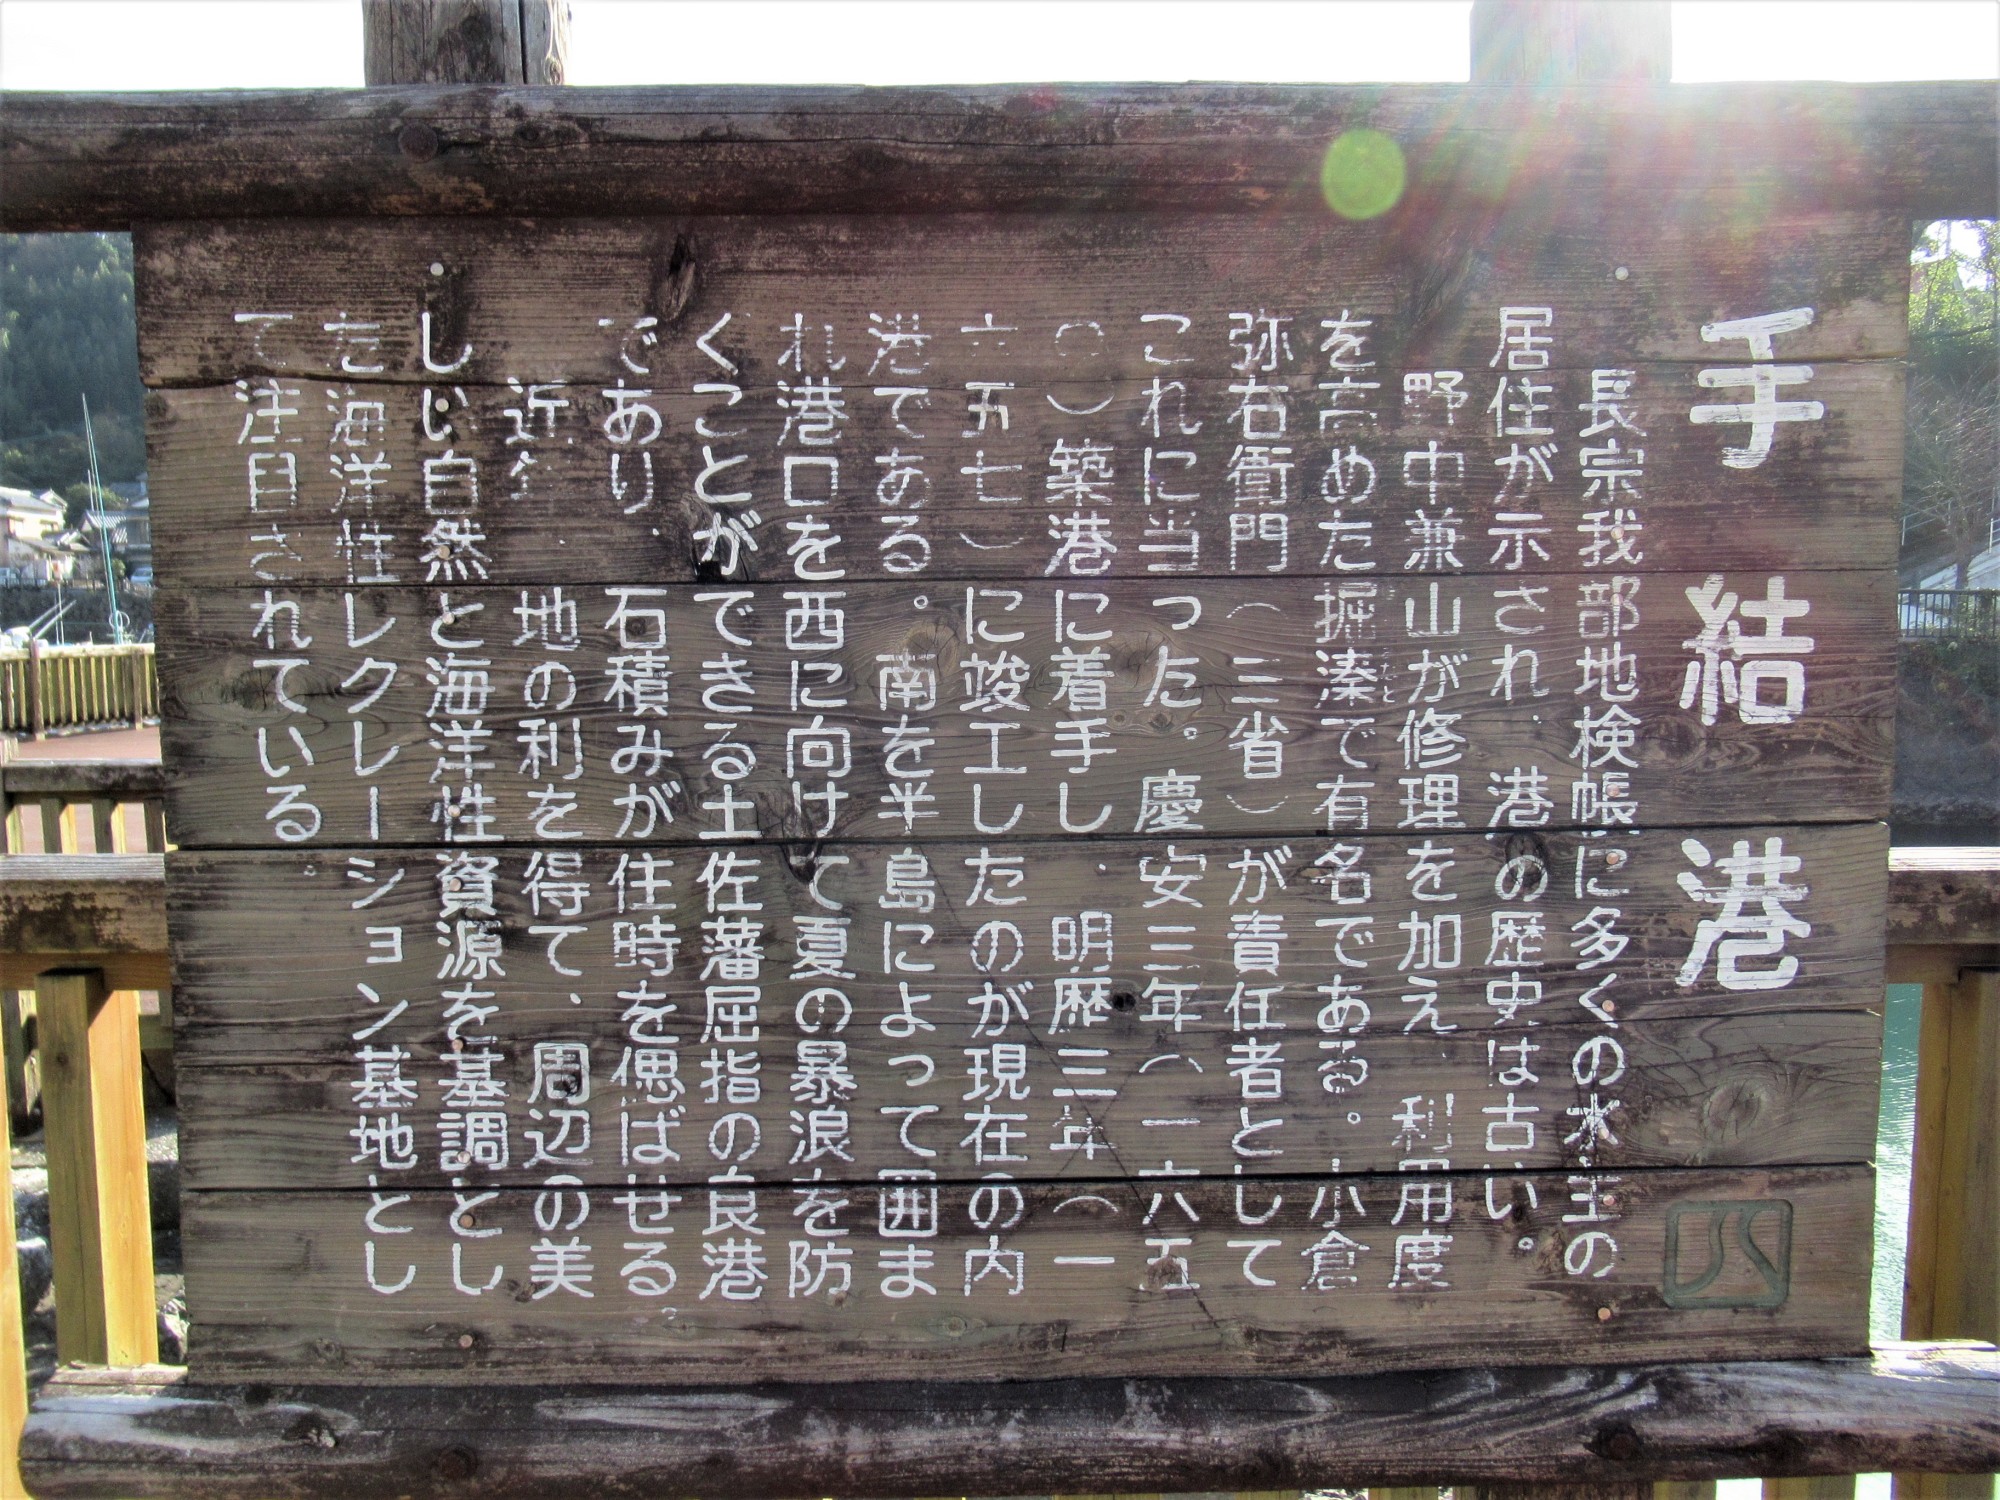 手結港
長宗我部地検帳に多くの水主の
居住が示され、港の歴史は古い。
野中兼山が修理を加え、利用度
を高めた掘溱で有名である。小倉
弥右衛門（三省）が責任者として
これに当った。慶安三年（一六五
〇）築港に着手し、明歴三年（一
六五七）に竣工したのが現在の内
港である。南を半島によって囲ま
れ港口を西に向けて夏の暴浪を防
くことができる土佐藩屈指の良港
であり、石積みが住時を偲ばせる。
近年地の利を得て、周辺の美
しい自然と海洋性資源を基調とし
た海洋性レクレーション基地とし
て注目されている。